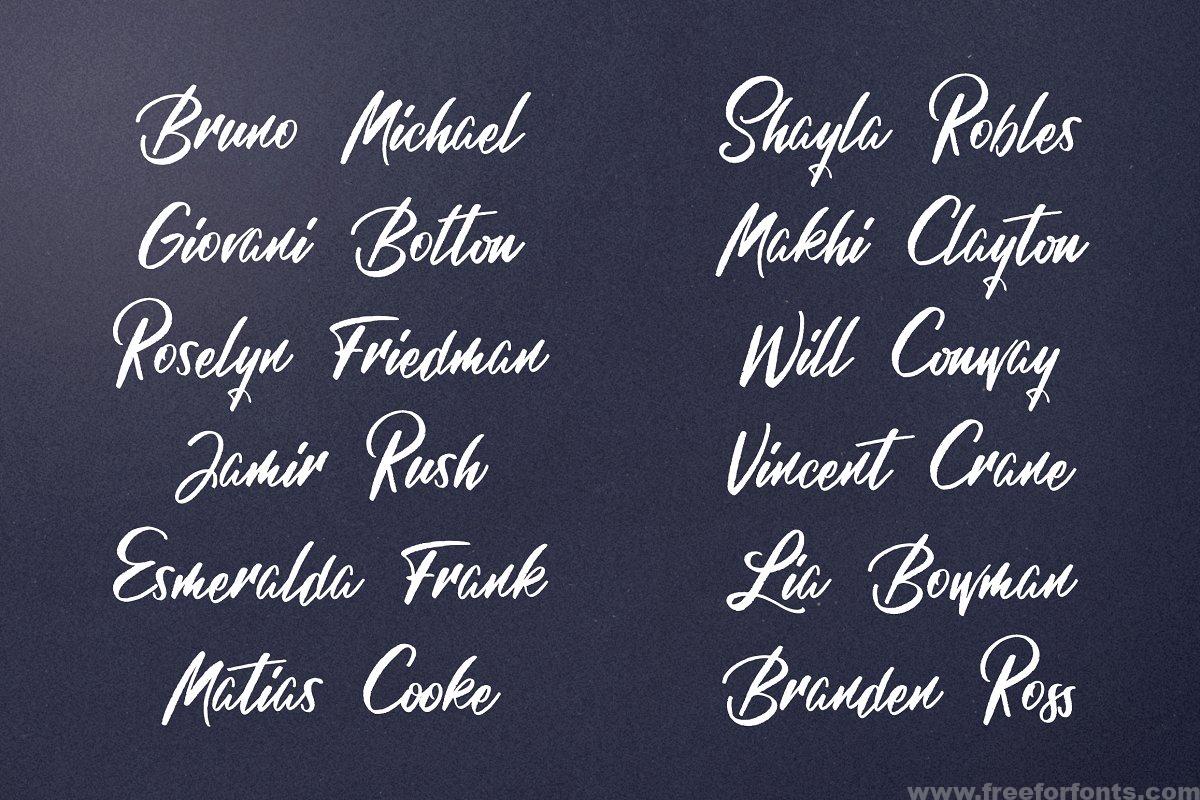 Bruno Michael
Giovani Botton
Roselyn Friedman
Jamir Rush
Esmeralda Frank
Matias Cooke
Shayla Robles
Makhi Clayton
Will Conway
Vincent Crane
Lia Bowman
Branden Ross
www.freeforfonts.com